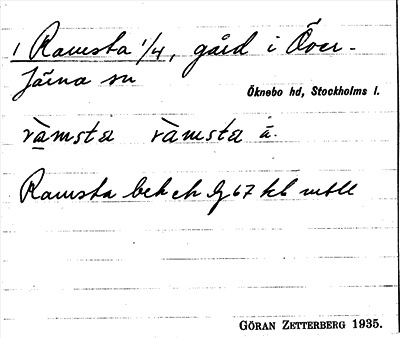 1 Ramsta 1/4, gård i Över-
Järna sn
Öknebo hd, Stockholms l.
ràmsta ràmsta ä.
Ramsta
GÖRAN ZETTERBERG 1935.